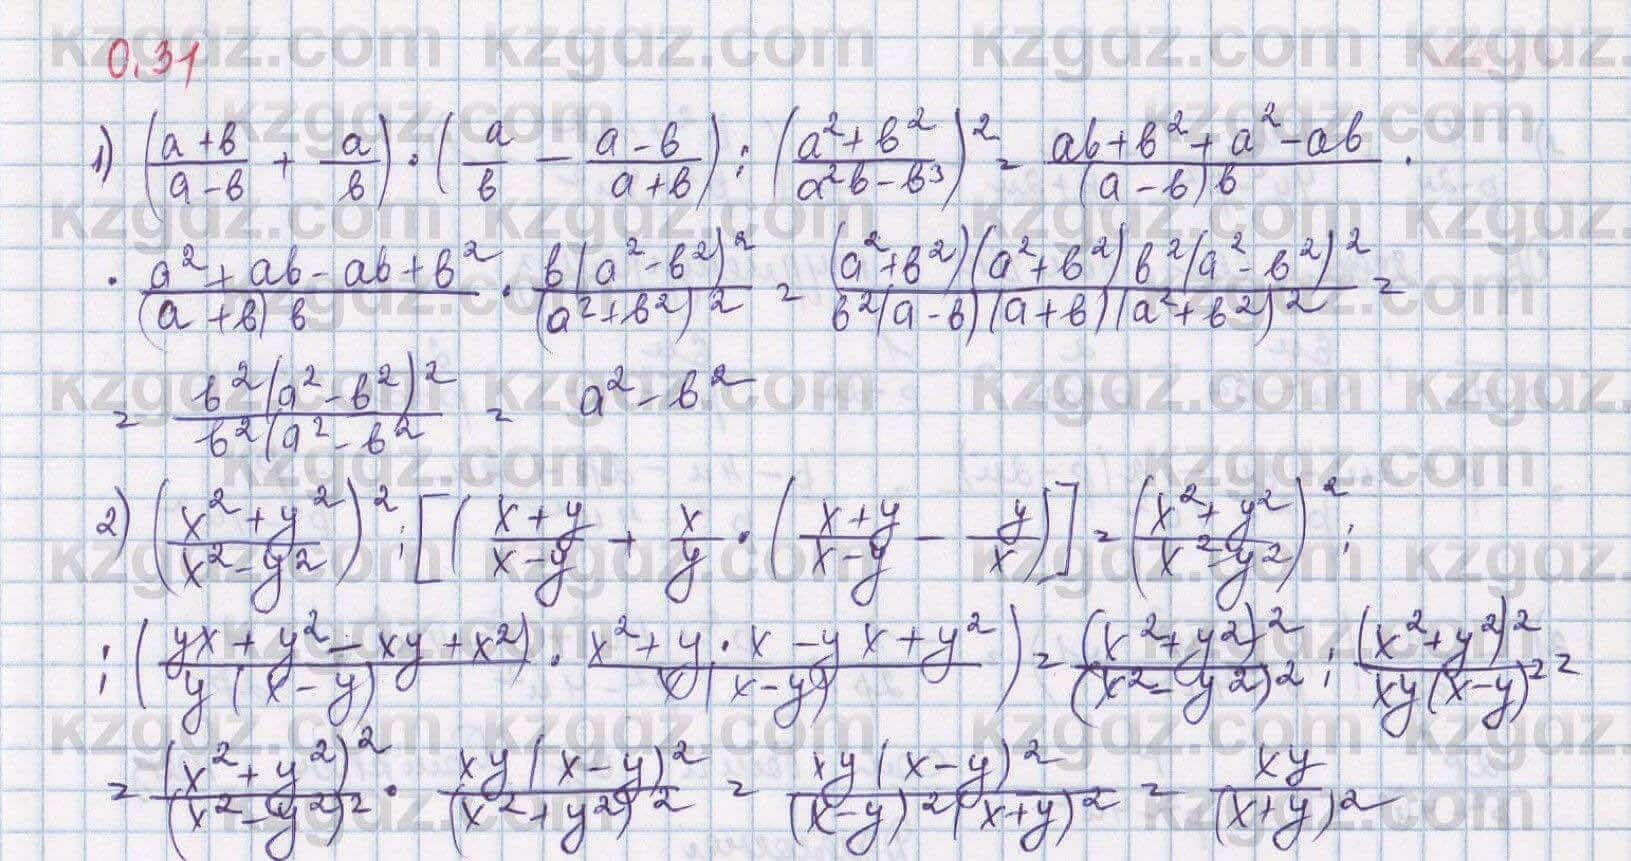 0.31
1) ((a+b)/(a-b) + a/b) · (a/b - (a-b)/(a+b)) : ((a²+b²)/(a²b-b³))² = (ab+b²+a²-ab)/((a-b)b) ·
· (a²+ab-ab+b²)/((a+b)b) · (b(a²-b²)²)/((a²+b²)²) = ((a²+b²)(a²+b²)b²(a²-b²)²)/(b²(a-b)(a+b)(a²+b²)²) =
= (b²(a²-b²)²)/(b²(a²-b²) = a²-b²
2) ((x²+y²)/(x²-y²))² : [((x+y)/(x-y) + x/y · ((x+y)/(x-y) - y/x)] = ((x²+y²)/(x²-y²))² :
: ((yx+y²-xy+x²)/(y(x-y)) · (x²+y·x-yx+y²)/(x(x-y))) = ((x²+y²)²)/((x²-y²)²) : ((x²+y²)²)/(xy(x-y)²) =
= ((x²+y²)²)/((x²-y²)²) · (xy(x-y)²)/((x²+y²)²) = (xy(x-y)²)/((x-y)²(x+y)²) = xy/((x+y)²)
kzgdz.com